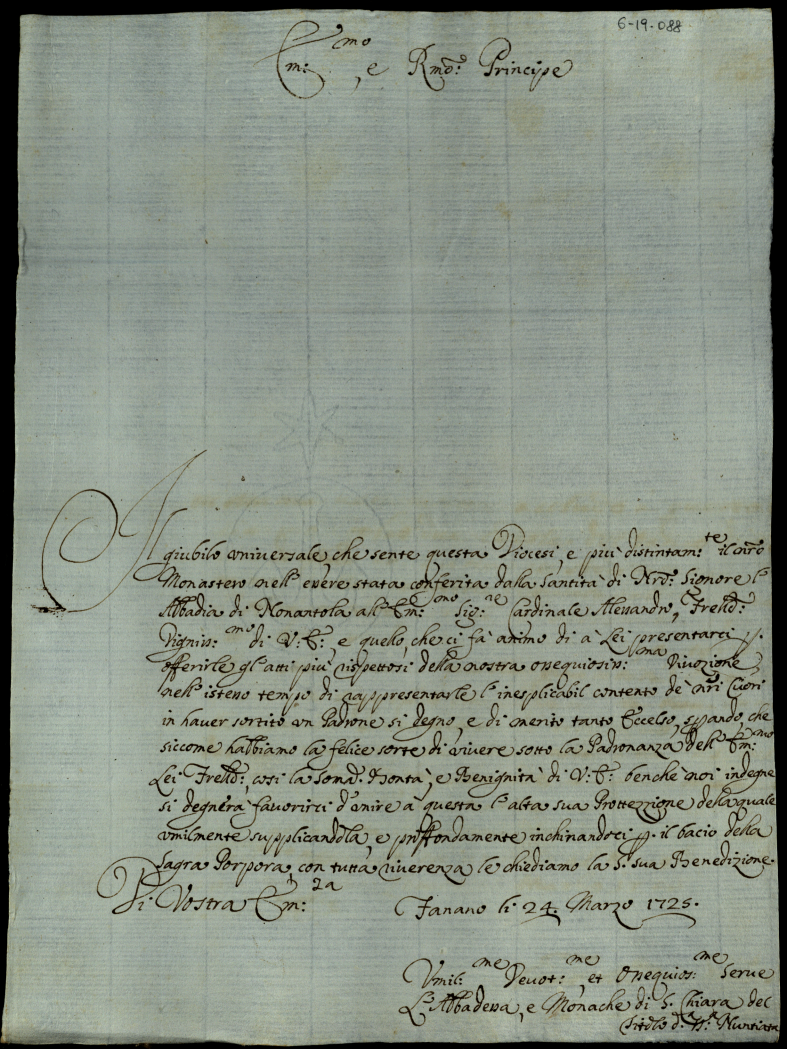 6-19-088
Em:mo, e Rmo: Principe
Il giubilo vniversale, che sente questa Diocesi, e più distintam:te il nro
Monastero nell'essere stata conferita dalla Santità di Nro: Signore l'
Abbadia di Nonantola all'Em:mo Sig:re Cardinale Alessandro, Fratello:
Digniss:mo di V: E:, e quello, che ci fà animo di à Lei presentarci p.
offerirle gl'atti più rispettosi della nostra ossequiosiss:ma Divozione,
nell'istesso tempo di rappresentarle l'inesplicabil contento de nri Cuori
in haver sortito vn Padrone si degno, e di merito tanto Eccelso, sperando, che
siccome habbiamo la felice sorte di vivere sotto la Padronanza dell'Em:mo
Lei Fratello:, cosi la somã. Bontà, e Benignità di V: E: benchè noi indegne
si degnerà favorirci d'vnire à questa l'alta sua Prottezzione della quale
vmilmente supplicandola, e proffondamente inchinandoci p. il bacio della
Sagra Porpora, con tutta riverenza le chiediamo la S. sua Benedizione.
Di Vostra Em:za
Fanano li 24. Marzo 1725.
Vmili:me Devot:me, et Ossequios:me Serue
L'Abbadessa, e Monache di S. Chiara del
titolo d. SS. Nuntiata